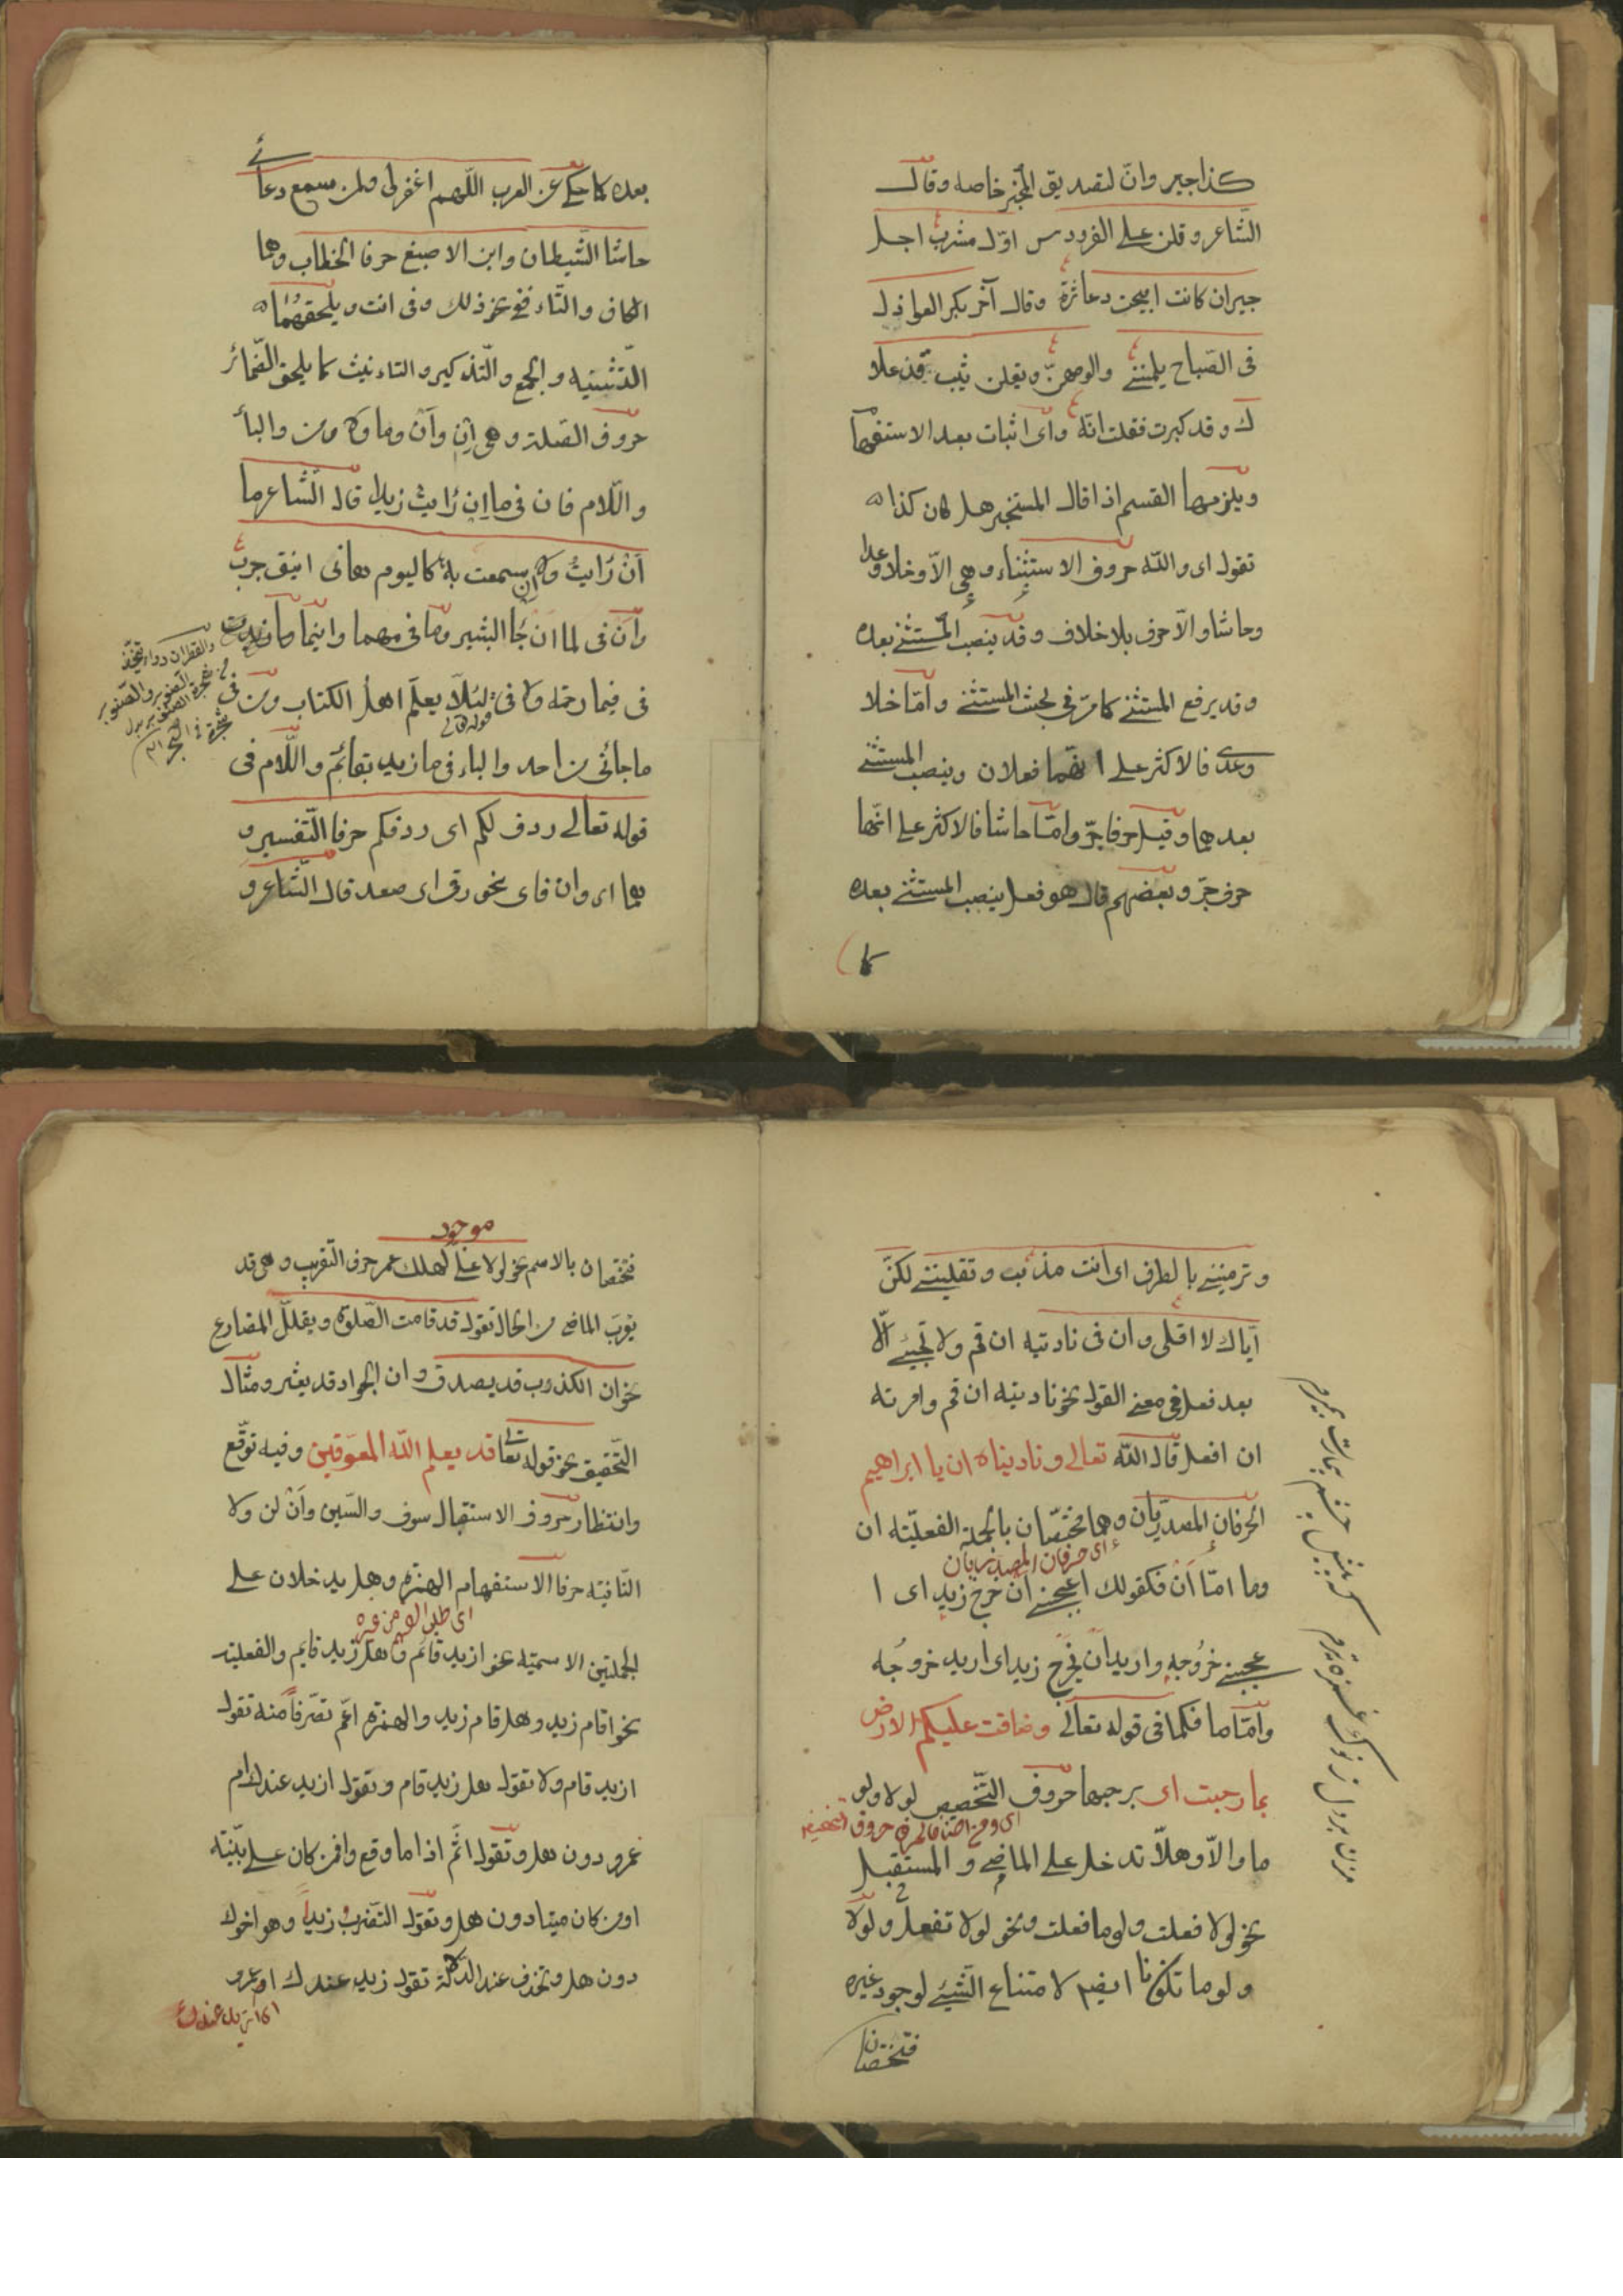 كذا جير وانّ لتصديق المخبر خاصه وقال
الشّاعر وقلن على الفردوس اوّل مشرب اجل
جيران كانت ابيحت دعاثره وقال آخر بكر العواذل
فى الصّباح يلمننى والومهنّ ويقلن شيب قد علا
ك وقد كبرت فقلت انّه واى اثبات بعد الاستفهام
ويلزمها القسم اذا قال المستخبر هل كان كذا
تقول اى والله حروف الاستثناء وهى الاّ وخلا وعدا
وحاشا والاّ حرف بلا خلاف وقد ينصب المستثنى بعده
وقد يرفع المستثنى كما مرّ فى بحث المستثنى وامّا خلا
وعدى فالاكثر على انّهما فعلان وينصب المستثنى
بعدهما وقيل حرفا جرّ وامّا حاشا فالاكثر على انّها
حرف جرّ وبعضهم قال هو فعل ينصب المستثنى بعده
كما
بعده كما حكى عن العرب اللّهم اغفر لى ولمن سمع دعائى
حاشا الشّيطان وابن الاصبغ حرفا الخطاب وهما
الكاف والتّاء فى نحو ذلك وفى انت ويلحقهما
التّثنيه والجمع والتّذكير والتاءنيث كما يلحق الضّمائر
حروف الصّلة وهى اِن واَن وما ولا ومن والبأ
واللّام فان فى ما اِن رايت زيدا قال الشّاعر ما
اَنْ رَايتُ ولا ان سمعت به كاليوم هانى اينق جرب
واَن فى لما ان جأ البشير وما فى مهما واينما وما
فى فيما رحمة ولا فى لئلّا يعلم اهل الكتاب ومن فى
قوله تعالى
ما جائنى من احد والباء فى ما زيد بقائم واللّام فى
قوله تعالى ردف لكم اى ردفكم حرفا التّفسير و
هما اى وان فاى نحو رقى اى صعد قال الشّاعر و
والقطران دواء يتخذ
من شجرة الصنوبر والصنوبر
وترميننى بالطرف اى انت مذنب وتقليننى لكنّ
ايّاك لا اقلى وان فى ناديته ان قم ولا تجيئ الّا
بعد فعل فى معنى القول نحو ناديته ان قم وامرته
ان افعل قال الله تعالى وناديناه ان يا ابراهيم
الحرفان المصدريّان وهما مختصّان بالجملة الفعليّه ان
اى حرفان المصدريان
وما امّا اَنْ فكقولك اعجبنى ان خرج زيد اى ا
عجبنى خرُوجه واريد ان يخرج زيد اى اريد خروجُه
وامّا ما فكما فى قوله تعالى وضاقت عليكم الارض
بما رحبت اى برحبها حروف التّخصيص لولا ولو
ما والاّ وهلاّ تدخل على الماضى والمستقبل
نحو لولا فعلت ولوما فعلت ونحو لولا تفعل ولولا
ولوما تكونا ايضا لامتناع الشّيئ لوجود غيره
فتختصان
موجود
فتختصان بالاسم نحو لولا على لهلك عمر حرف التّقريب وهى قد
يقرب الماضى من الحال تقول قد قامت الصّلوة ويقلّل المضارع
نحو ان الكذوب قد يصدق وان الجواد قد يعثر ومثال
التّحقيق نحو قوله تعا قد يعلم الله المعوّقين وفيه توقّع
وانتظار حروف الاستقبال سوف والسّين واَنْ لن ولا
النّافية حرفا الاستفهام الهمزه وهل يدخلان على
الجملتين الاسميّه نحو ازيد قائم وهل زيد قايم والفعلية
نحو اقام زيد وهل قام زيد والهمزه اعّم تصّرفاً منه تقول
ازيد قام ولا تقول هل زيد قام وتقول ازيد عندك ام
عمرو دون هل وتقول اثّم اذا ما وقع وافمن كان على بيّنته
اومن كان ميتا دون هل وتقول التّضرب زيداً وهو اخوك
دون هل وتحذف عند الدّلالة تقول زيد عندك ام عمرو
اى ازيد عندك